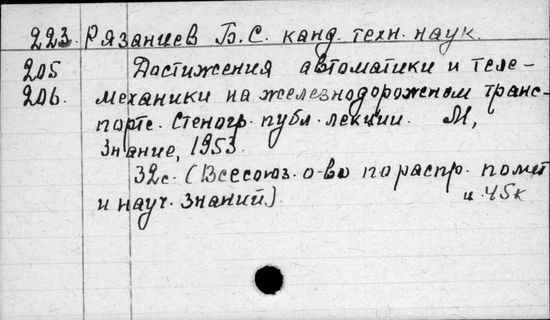 223. Рязанцев Б.С. канд. техн. наук.
205 Достижения автоматики и теле-
206. механики на железнодорожном транс-
порте. Стеногр. публ. лекции. М,
Знание, 1953.
32с. (Всесоюз. о-во по распр. полит
и науч. знаний). ц. 45к